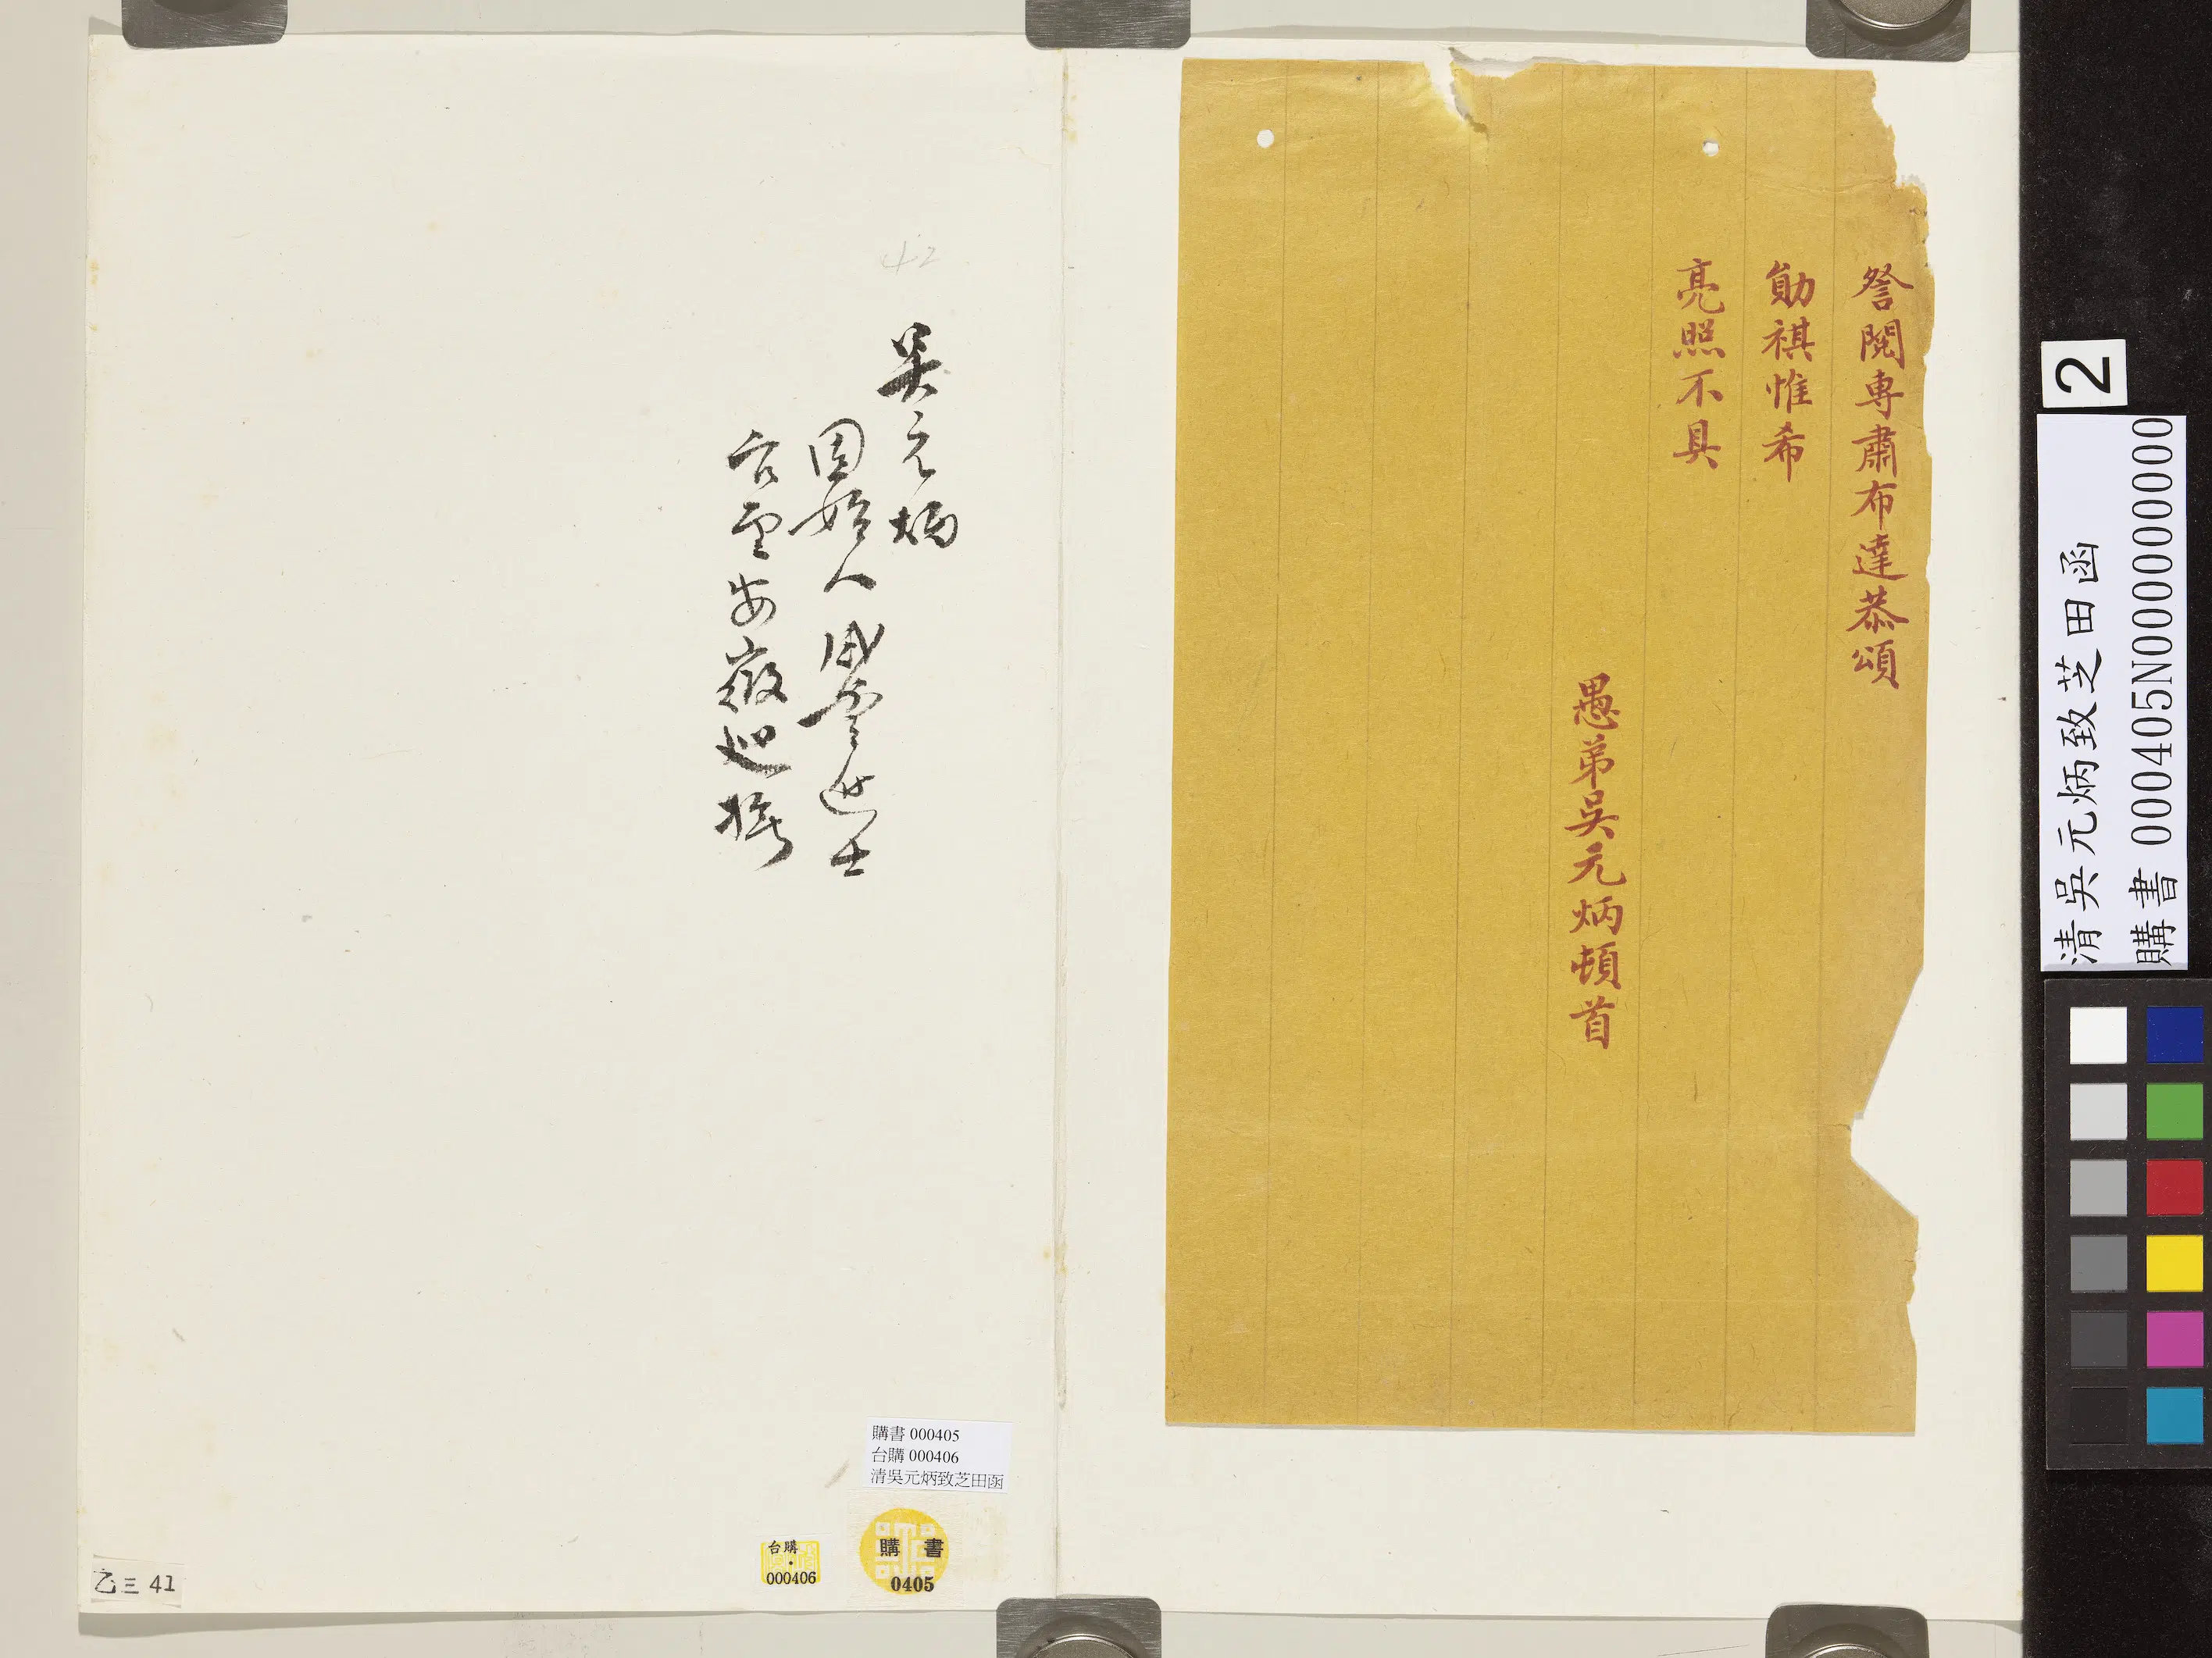 詧閱專肅布達恭頌
勛祺惟希
亮照不具
愚弟吳元炳頓首
42
吳元炳
固始人 咸豐進士
官至安徽巡撫
購書 000405
台購 000406
清吳元炳致芝田函
台購
000406
購書
0405
乙三 41
2
清吳元炳致芝田函
購書 000405N000000000